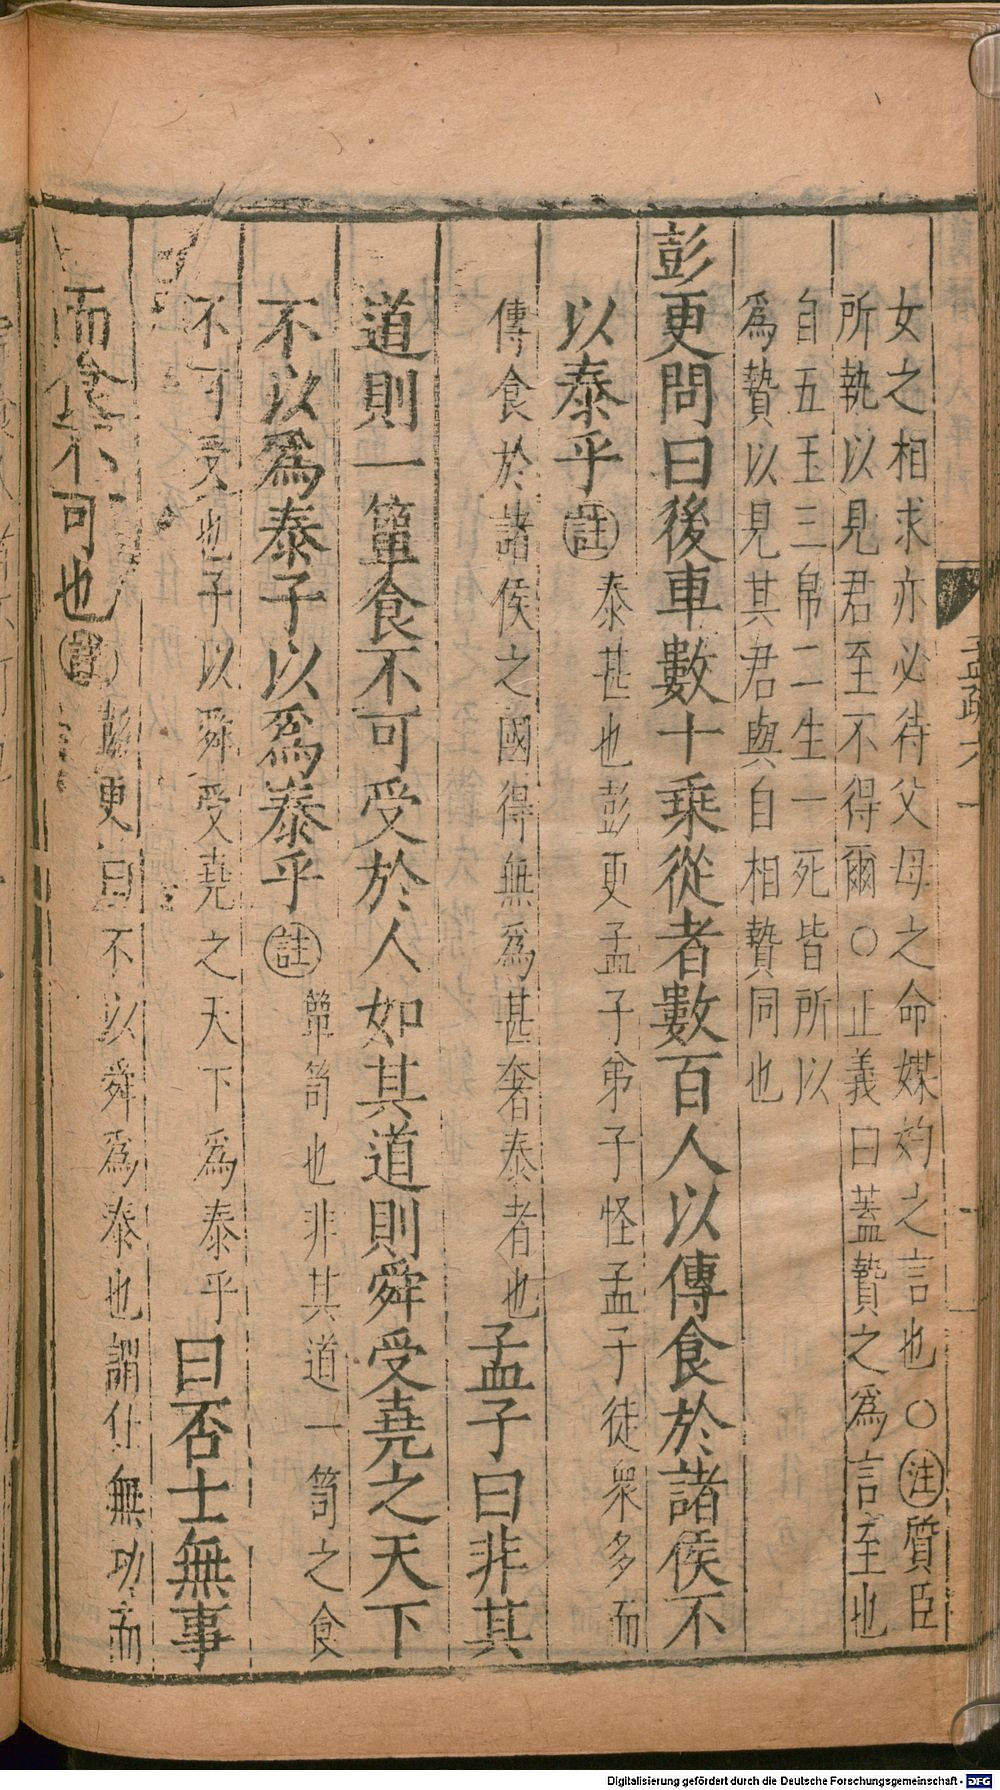 女之相求亦必待父母之命媒妁之言也○注質臣
所執以見君至不得爾○正義曰蓋贄之爲言至也
自五玉三帛二生一死皆所以
爲贄以見其君與自相贄同也
彭更問曰後車數十乘從者數百人以傳食於諸侯不
以泰乎註泰甚也彭更孟子弟子怪孟子徒衆多而
傳食於諸侯之國得無爲甚奢泰者也孟子曰非其
道則一簞食不可受於人如其道則舜受堯之天下
不以爲泰子以爲泰乎註簞笥也非其道一笥之食
不可受也子以舜受堯之天下爲泰乎曰否士無事
而食不可也註彭更曰不以舜爲泰也謂仕無功而
孟疏六
Digitalisierung gefördert durch die Deutsche Forschungsgemeinschaft - DFG